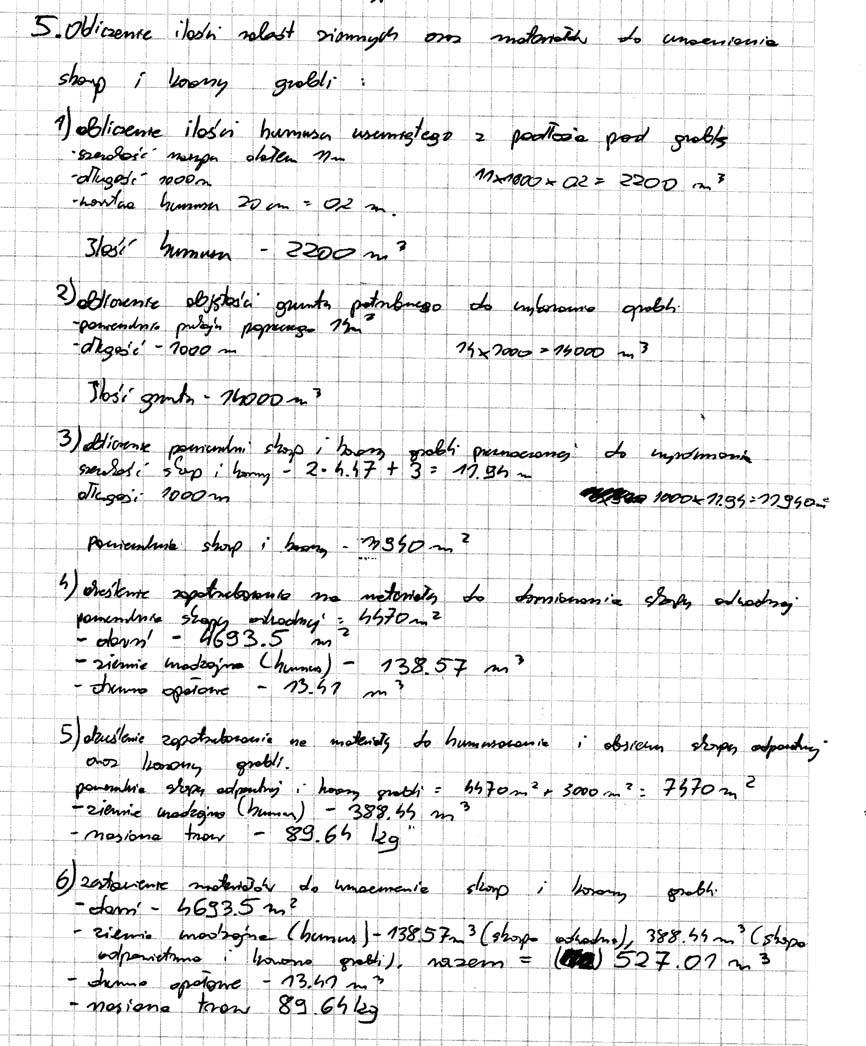 5. Obliczenie ilości robót ziemnych oraz materiałów do umocnienia
skarp i korony grobli :
1) obliczenie ilości humusu usuniętego z podłoża pod groblę
- szerokość nasypu dołem 11m
- długość 1000m 11x1000 x 0.2 = 2200 m³
- warstwa humusu 20 cm = 0.2 m.
Ilość humusu - 2200 m³
2) obliczenie objętości gruntu potrzebnego do wybudowania grobli.
- powierzchnia przekroju poprzecznego 14m²
- długość - 1000 m 14x1000 = 14000 m³
Ilość gruntu - 14000 m³
3) obliczenie powierzchni skarp i korony grobli przeznaczonej do wyrównania
szerokość skarp i korony - 2 • 4.47 + 3 = 11.94 m
długość 1000m 1000x11.94=11940m²
powierzchnia skarp i korony - 11940 m²
4) określenie zapotrzebowania na materiały do darniowania skarpy odwodnej
powierzchnia skarpy odwodnej = 4470m²
- darń - 4693.5 m²
- ziemia urodzajna (humus) - 138.57 m³
- drewno opałowe - 13.41 m³
5) określenie zapotrzebowania na materiały do humusowania i obsiewu skarpy odpowietrznej
oraz korony grobli.
powierzchnia skarpy i korony grobli = 4470m² + 3000m² = 7470m²
- ziemia urodzajna (humus) - 388.44 m³
- nasiona traw - 89.64 kg
6) zestawienie materiałów do umocnienia skarp i korony grobli.
- darń - 4693.5 m²
- ziemia urodzajna (humus) - 138.57m³ (skarpa odwodna), 388.44 m³ (skarpa
odpowietrzna i korona grobli), razem = 527.01 m³
- drewno opałowe - 13.41 m³
- nasiona traw 89.64kg